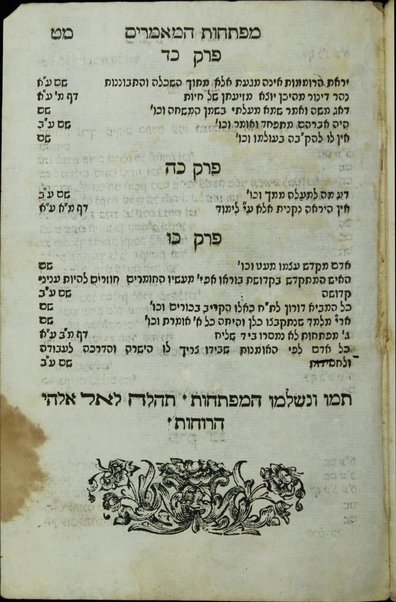 מפתחות המאמרים מט
פרק כד
יראת הרוממות אינה מגעת אלא מתוך השכלה והתבוננות שם ע"א
נהר דינור מהיכן יוצא מזיעתן של חיות דף מ' ע"א
דאג משה ואמר שמא מעלתי בשמן המשחה וכו' שם
היה אברהם מתפחד ואומר וכו' שם ע"ב
אין לו להק"בה בעולמו וכו' שם
פרק כה
דע מה למעלה ממך וכו' שם ע"ב
אין היראה נקנית אלא ע"י לימוד דף מ"א ע"א
פרק כו
אדם מקדש עצמו מעט וכו' שם
האיש המתקדש בקדושת בוראו אפי' מעשיו החומריים חוזרים להיות ענייני
קדושה שם ע"ב
כל המביא דורון לת"ח כאלו הקריב בכורים וכו' שם
ארי' מלמד שנתקבצו כלן והיתה כל א' אומרת וכו' שם
ג' מפתחות לא נמסרו ביד שליח דף מ"ב ע"א
כל אדם לפי האומנות שבידו צריך לו הישרה והדרכה לעבודה
ולחסידות שם ע"ב
תמו ונשלמו המפתחות ' תהלה לאל אלהי
הרוחות '